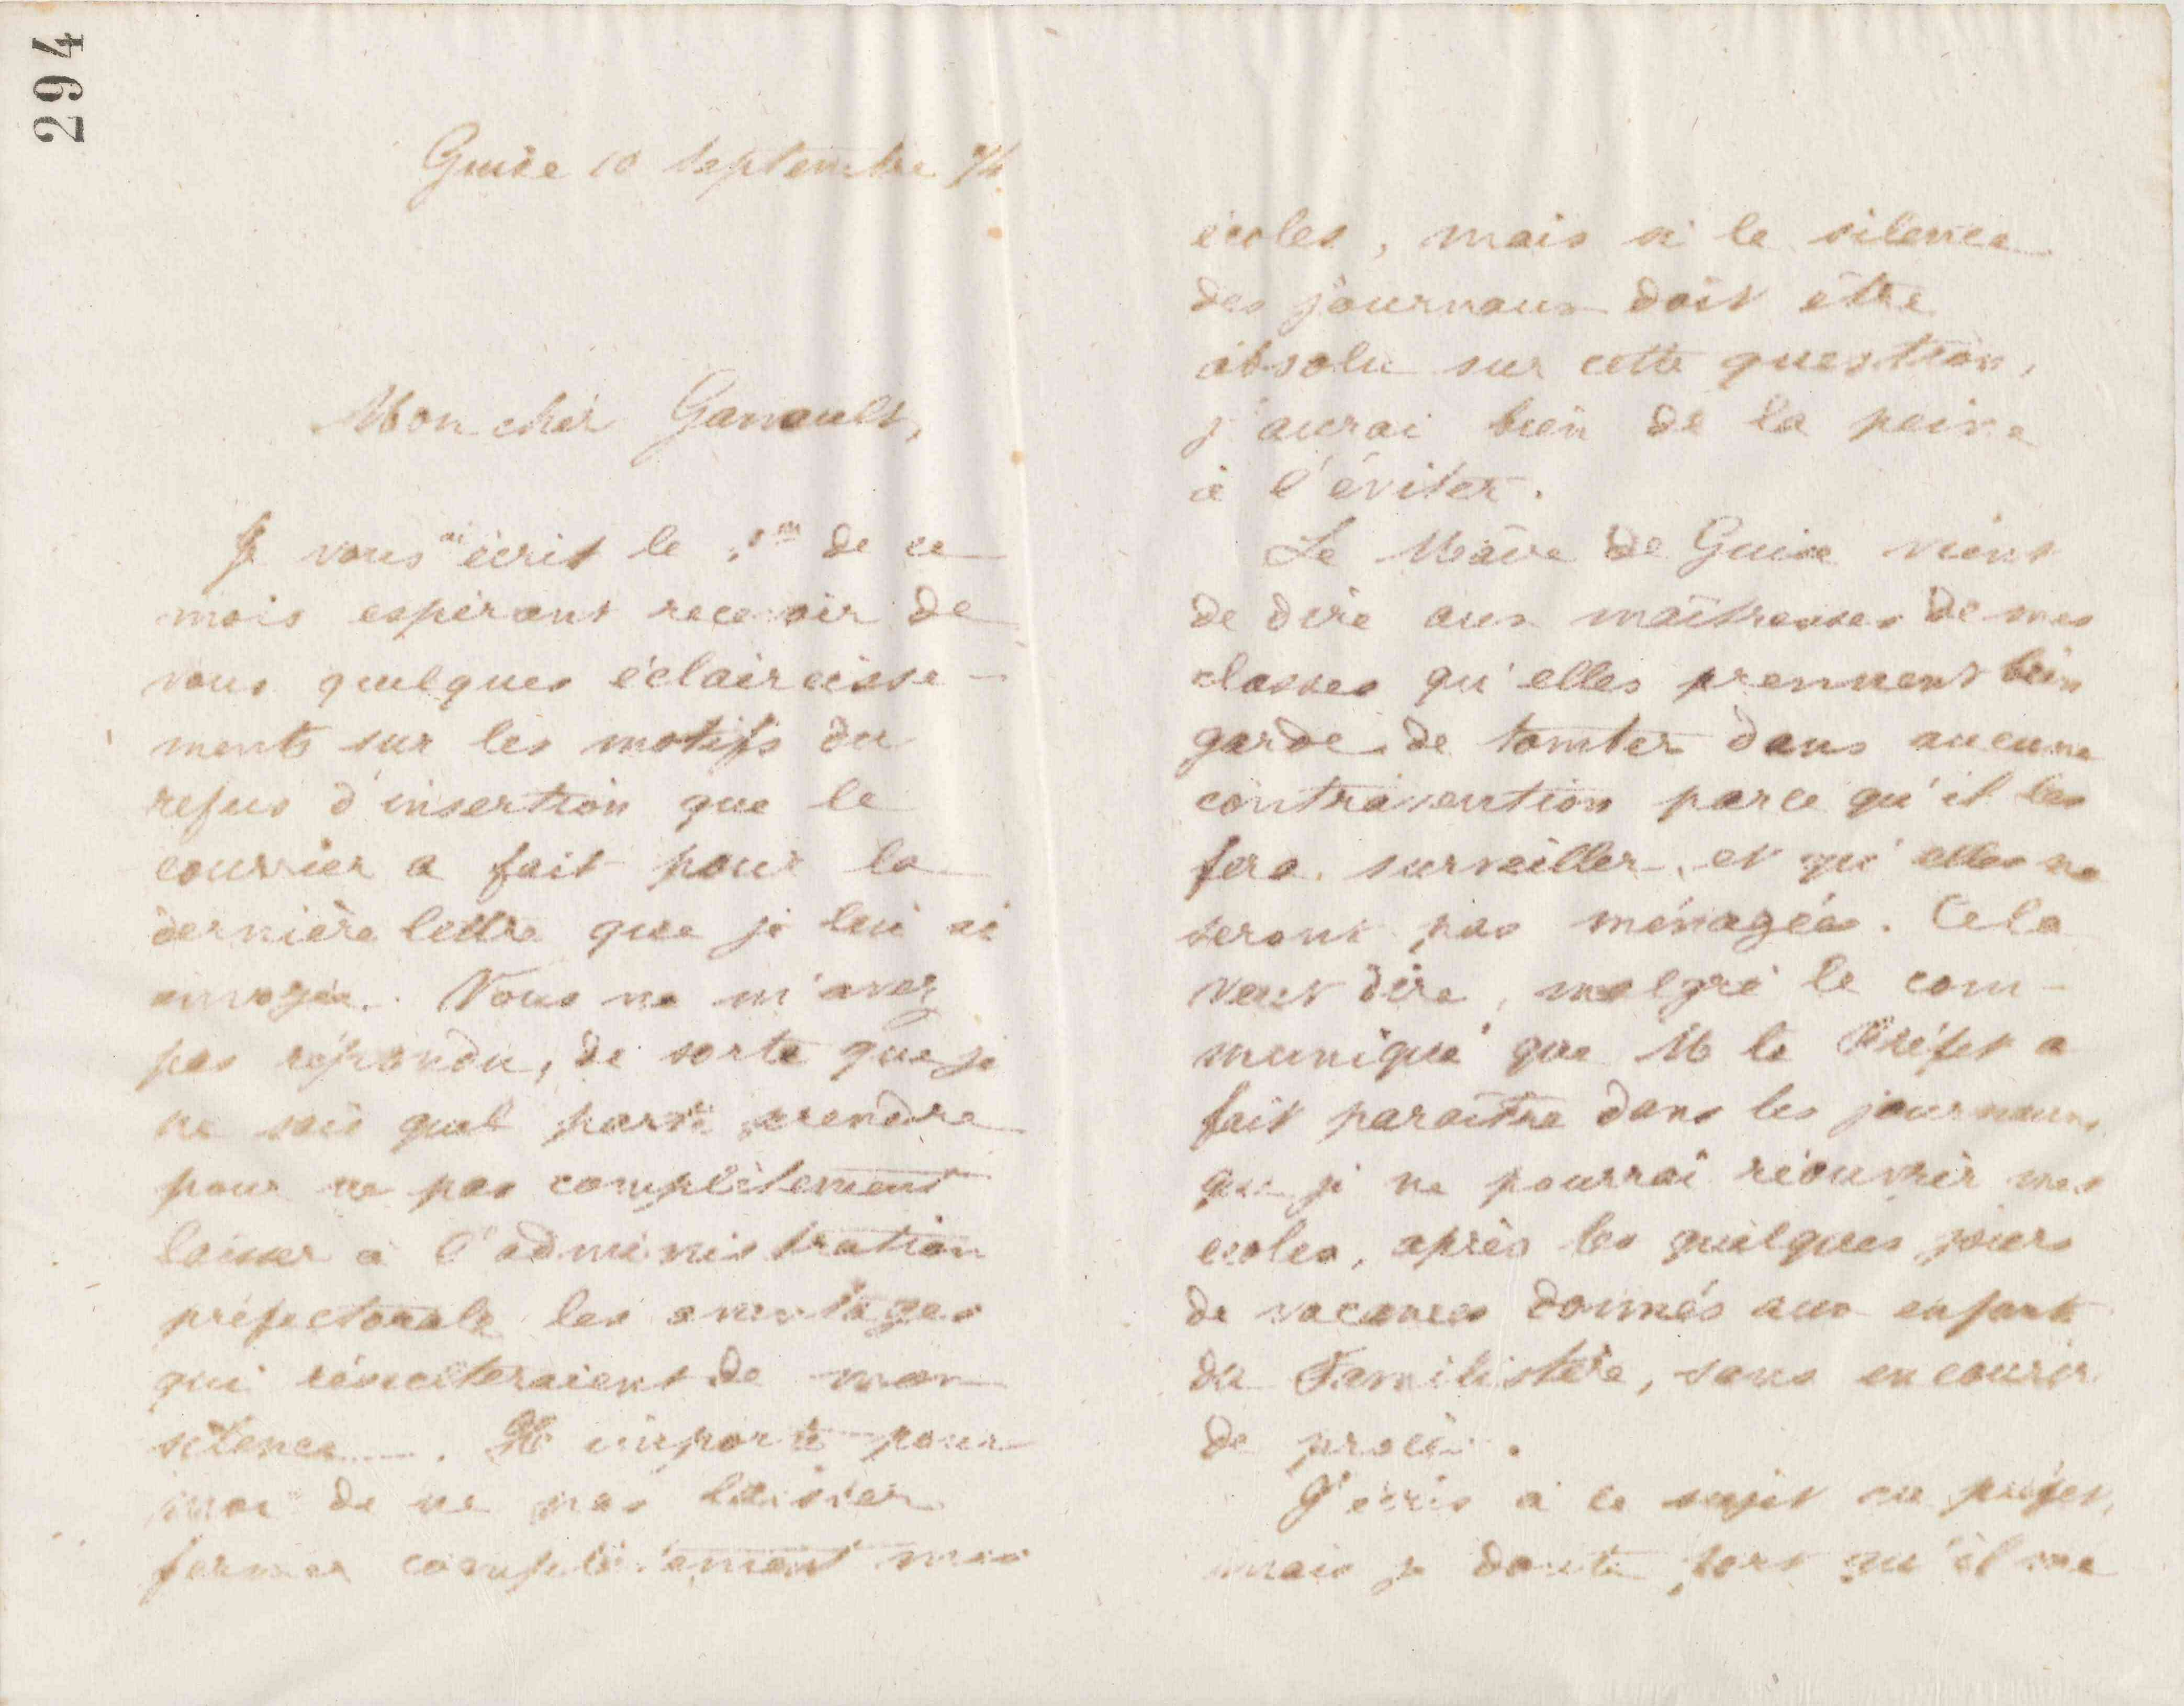 294
Guise 10 Septembre
Mon cher Ganault,
Je vous ai écrit le de ce
mois espérant recevoir de
vous quelques éclaircisse-
ments sur les motifs du
refus d'insertion que le
courrier a fait pour la
dernière lettre que je lui ai
envoyée. Vous ne m'avez
pas répondu, de sorte que je
ne sais quel parti prendre
pour ne pas complètement
laisser à l'administration
préfectorale les avantages
qui résulteraient de mon
silence. Il importe pour
moi de ne pas laisser
fermer complètement mes
écoles, mais si le silence
des journaux doit être
absolu sur cette question,
j'aurai bien de la peine
à l'éviter.
Le Maire de Guise vient
de dire aux maîtresses de mes
classes qu'elles prennent bien
garde de tomber dans aucune
contravention parce qu'il les
fera surveiller, et qu'elles ne
seront pas ménagées. Cela
veut dire, malgré le com-
muniqué que M le Préfet a
fait paraître dans les journaux
que je ne pourrai réouvrir mes
écoles, après les quelques jours
de vacances donnés aux enfants
du Familistère, sans encourir
de procès.
J'écris à ce sujet au préfet,
mais je doute fort qu'il me